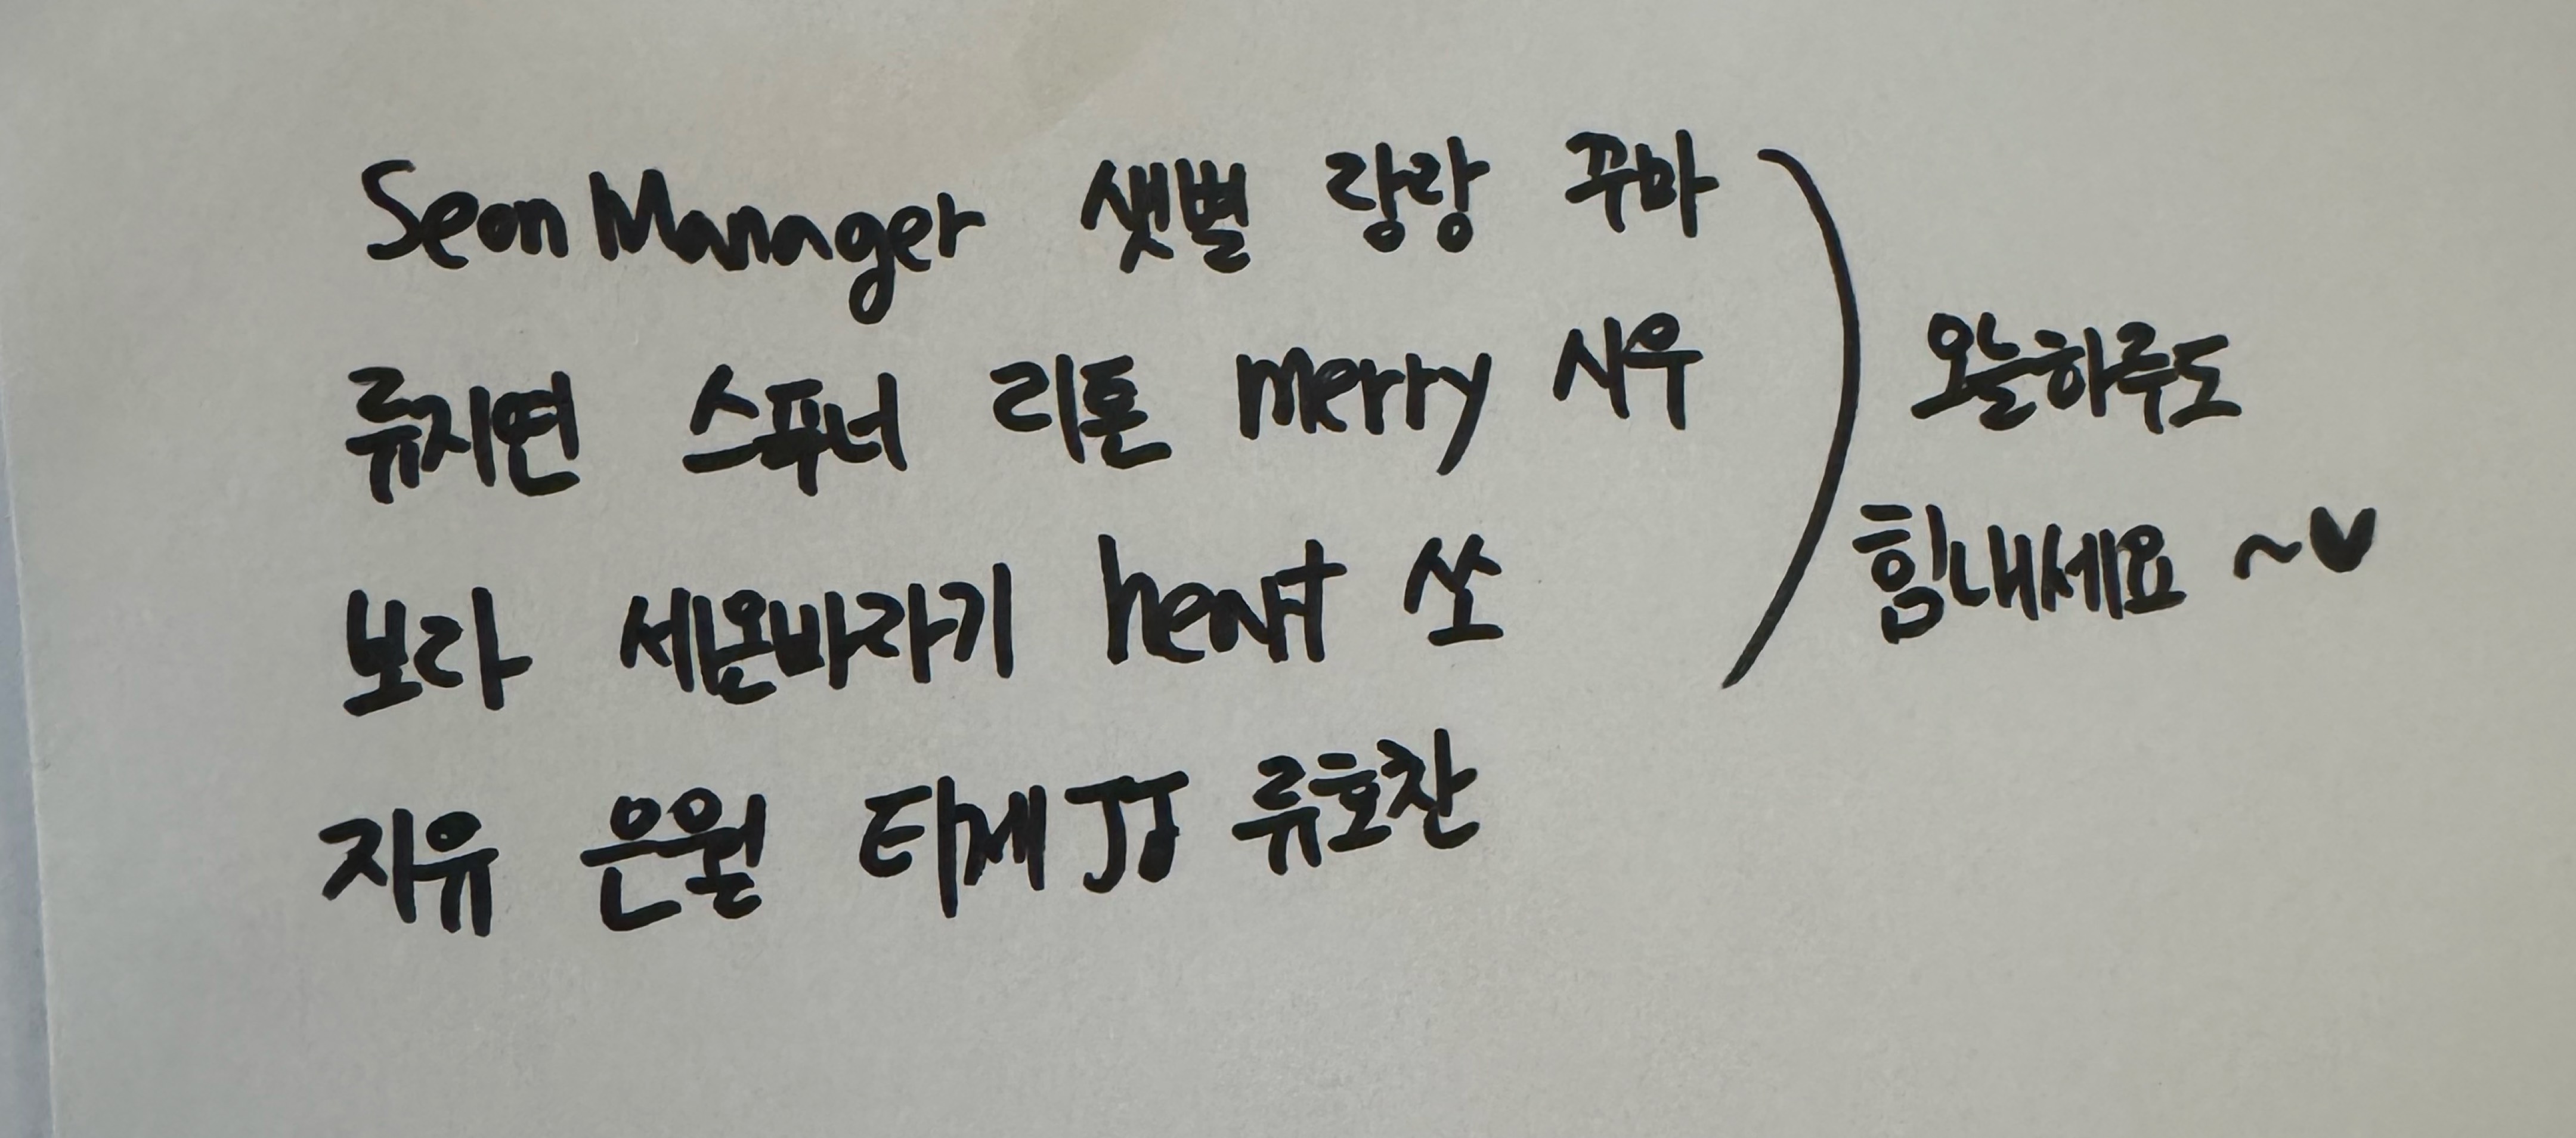 Seon Manager 샛별 랑랑 꾸마
류지연 스푸너 리톤 merry 시우
보라 세넬바라기 heart 쏘
지유 은월 타께 JJ 류호찬
오늘하루도
힘내세요 ~♥